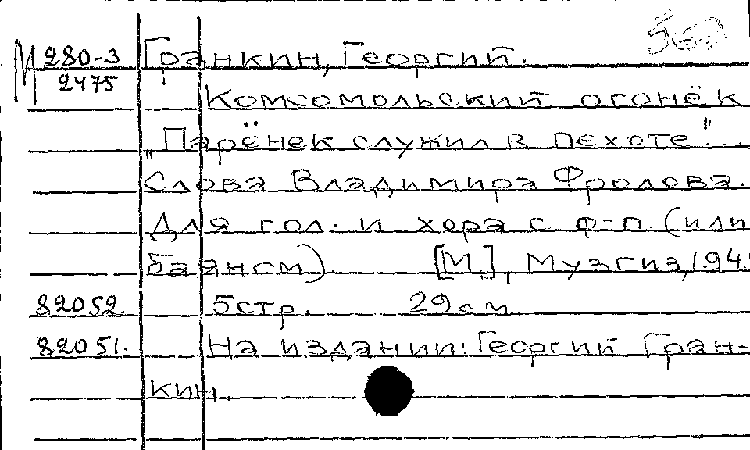 М 280-3 Гранкин, Георгий.
2475
Комсомольский огонёк
„Парёнек служил в пехоте"...
Слова Владимира Фролова.
Для гол. и хора с ф-п (или
баяном) [М.], Музгиз, 194
82052 5стр. 29см
82051. На издании: Георгий Гран-
кин.